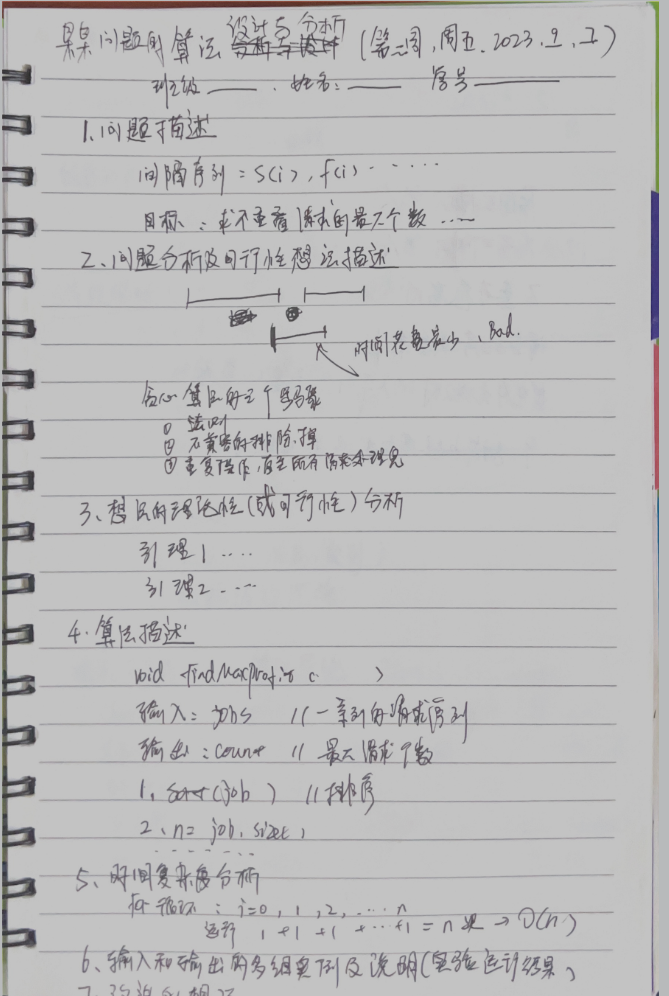 某某问题的算法设计与分析 (第二周,周五.2023.9.
班级____. 姓名:____ 序号____
1.问题描述
间隔序列:s(i), f(i)······
目标:求不重叠请求的最大个数······
2.问题分析及可行性想法描述
时间花费最少、Bad.
贪心算法的三个步骤
① 法则
② 不兼容的排除掉
③ 重复操作,直至所有请求处理完
3、想法的理论性(或可行性)分析
引理1 ····
引理2 ····
4.算法描述
void findMaxProfit ( )
输入:jobs //一系列的请求序列
输出:count // 最大请求个数
1、sort(job ) //排序
2、n= job.size(,
5、时间复杂度分析
for循环:i=0, 1, 2, ···· n
运行 1 +1 +1 +···+1 = n 次 → O(n)
6、输入和输出的多组实例及说明(实验运行结果)
7、